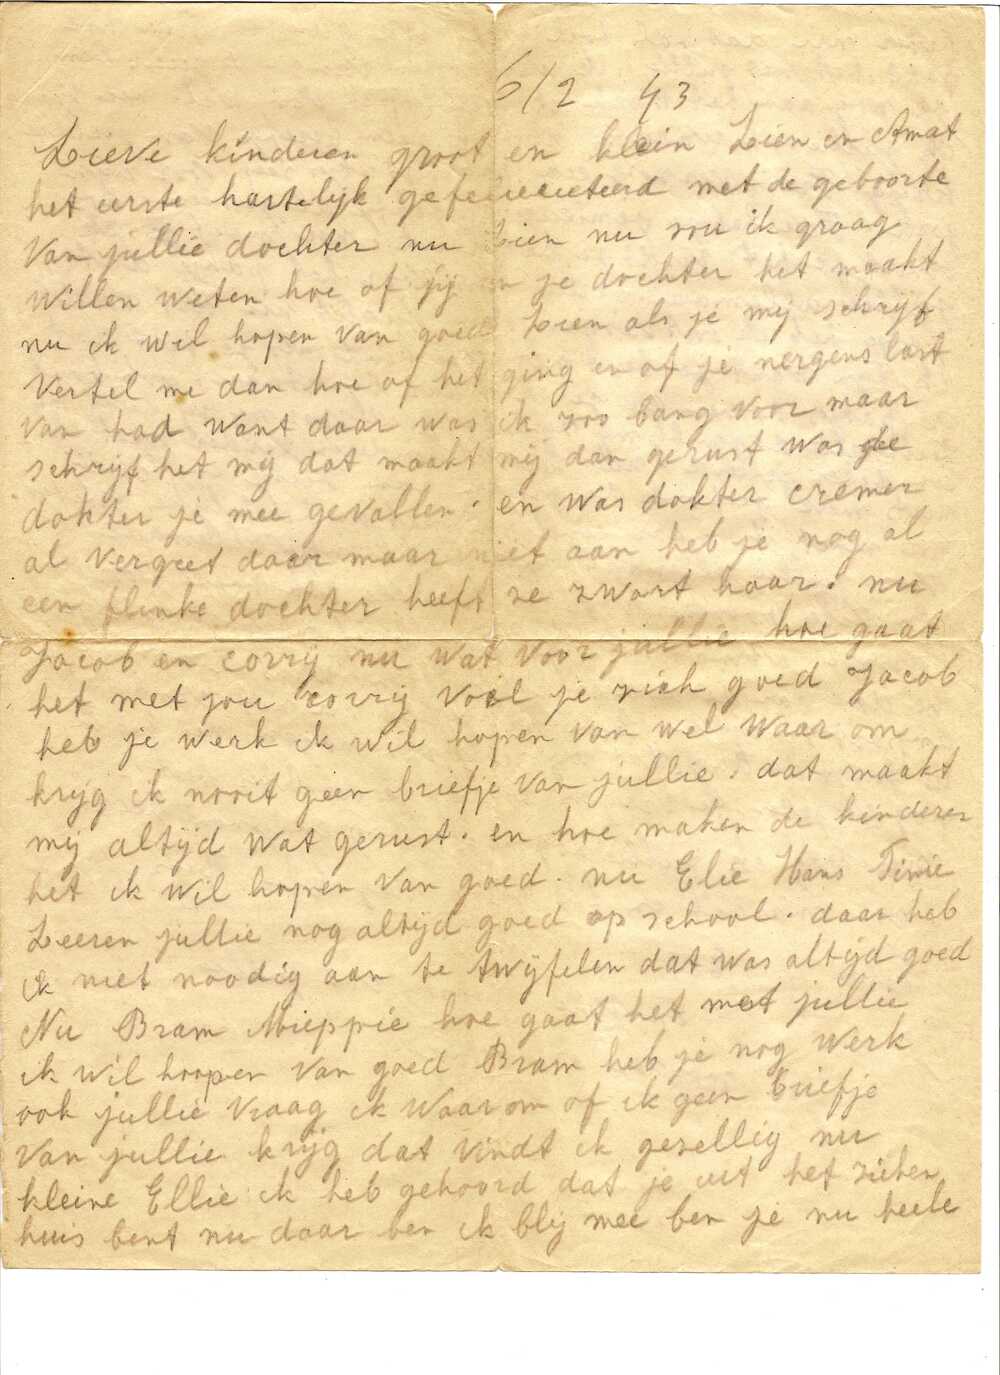 6/2 43
Lieve kinderen groot en klein Lien en Amat
het eerste hartelijk gefelicieteerd met de geboorte
Van jullie dochter nu Lien nu zou ik graag
willen weten hoe of jij en je dochter het maakt
nu ik wil hopen van goed Lien als je mij schrijf
Vertel me dan hoe of het ging en of je nergens last
van had want daar was ik zoo bang voor maar
schrijf het mij dat maakt mij dan gerust was de
dokter je mee gevallen. en was dokter cremer
al vergeet daar maar niet aan heb je nog al
een flinke dochter heeft ze zwart haar. nu
Jacob en corrij nu wat voor jullie hoe gaat
het met jou corrij voel je zich goed Jacob
heb je werk ik wil hopen van wel waar om
krijg ik nooit geen briefje van jullie. dat maakt
mij altijd wat gerust. en hoe maken de kinderen
het ik wil hopen van goed. nu Elie Hans Tinie
Leeren jullie nog altijd goed op school. daar heb
ik niet noodig aan te twijfelen dat was altijd goed
Nu Bram Mieppie hoe gaat het met jullie
ik wil hoopen van goed Bram heb je nog werk
ook jullie vraag ik waarom of ik geen briefje
van jullie krijg dat vindt ik gezellig nu
kleine Ellie ik heb gehoord dat je uit het zieken
huis bent nu daar ben ik blij mee ben je nu heele